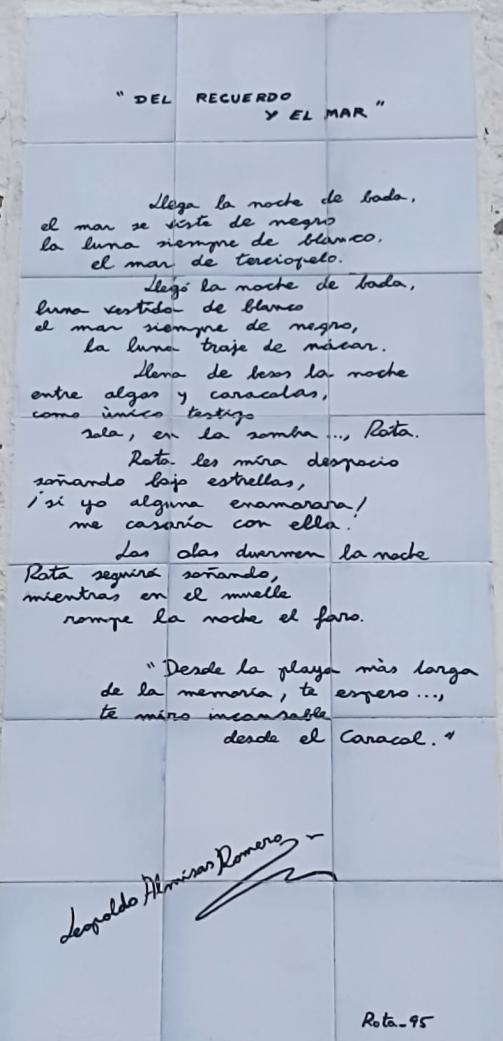 "DEL RECUERDO
Y EL MAR"
Llega la noche de boda,
el mar se viste de negro
la luna siempre de blanco,
el mar de terciopelo.
Llegó la noche de boda,
luna vestida de blanco
el mar siempre de negro,
la luna traje de nácar.
Llena de besos la noche
entre algas y caracolas,
como ùnico testigo
sola, en la sombra ..., Rota.
Rota les mira despacio
soñando bajo estrellas,
¡si yo alguna enamorara!
me casaría con ella.
Las olas duermen la noche
Rota seguirá soñando,
mientras en el muelle
rompe la noche el faro.
"Desde la playa màs larga
de la memoria, te espero ...,
te miro incansable
desde el Caracol."
Leopoldo Almisas Romero
Rota-95